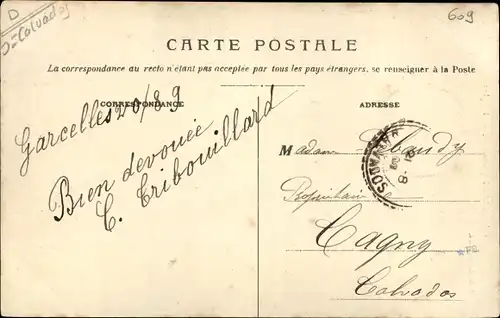 D
J=Calvados
609
CARTE POSTALE
La correspondance au recto n'étant pas acceptée par tous les pays étrangers, se renseigner à la Poste
CORRESPONDANCE
ADRESSE
Garcelles 20/8 9
Bien devouée
C. Tribouillard
Madame Lebaudy
Propriétaire
Cagny
Calvados